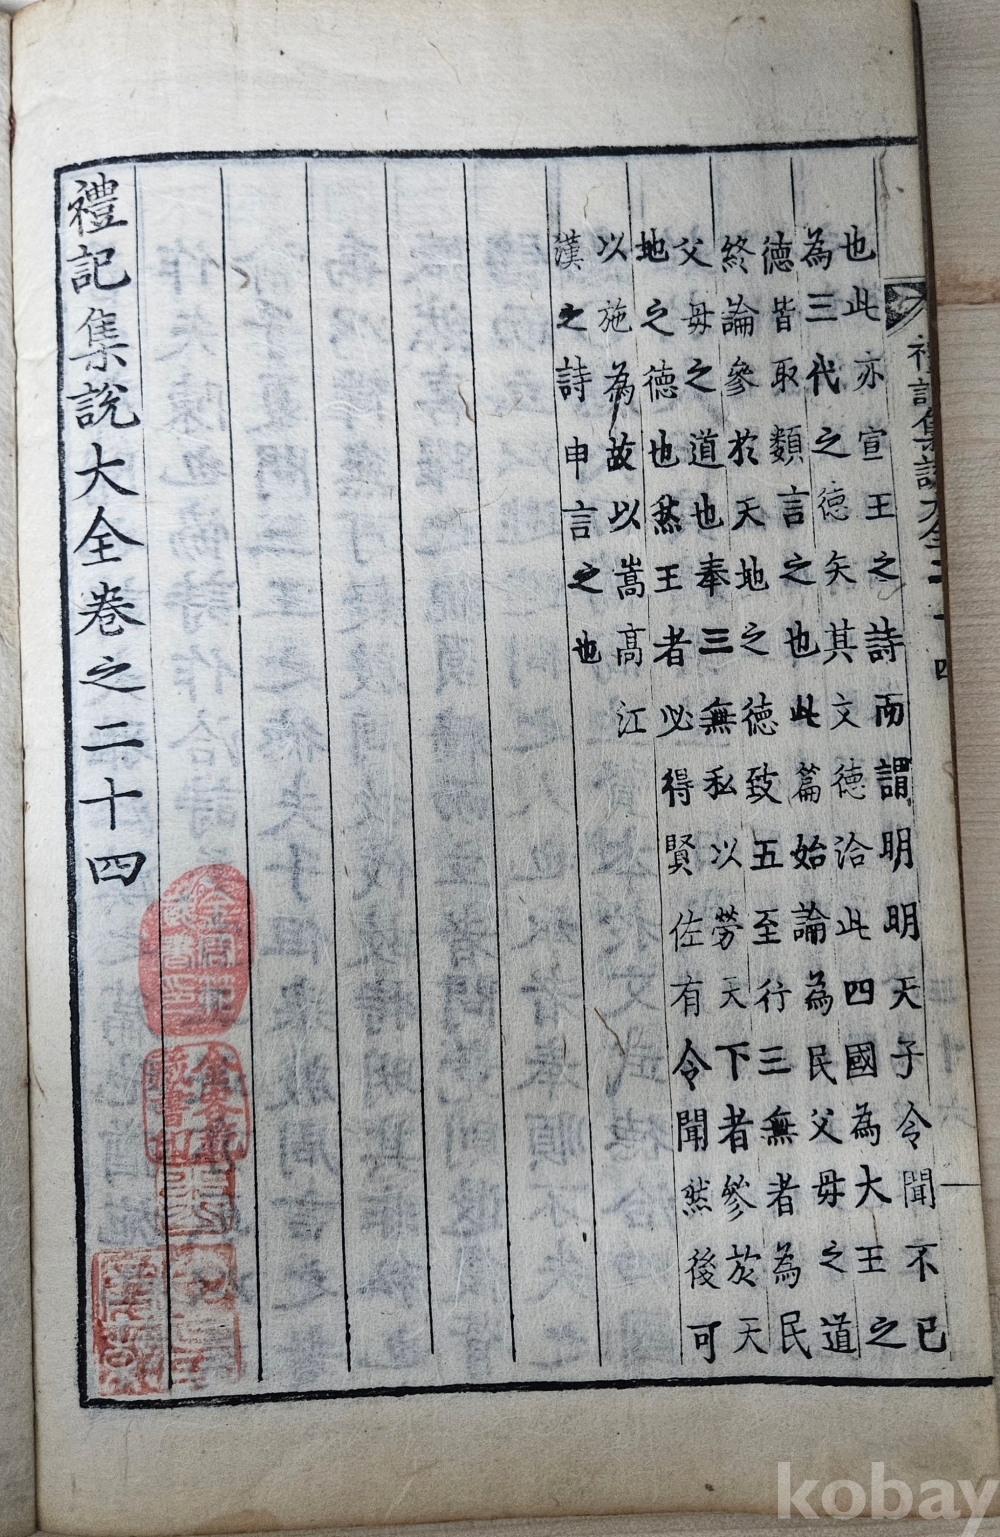 禮記集說大全 二十四
也此亦宣王之詩而謂明明天子令聞不已
為三代之德矣其文德洽此四國為大王之
德皆取類言之也此篇始論為民父毋之道
終論參於天地之德致五至行三無者為民
父毋之道也奉三無私以勞天下者參於天
地之德也然王者必得賢佐有令聞然後可
以施為故以嵩高江
漢之詩申言之也
禮記集說大全卷之二十四
kobay